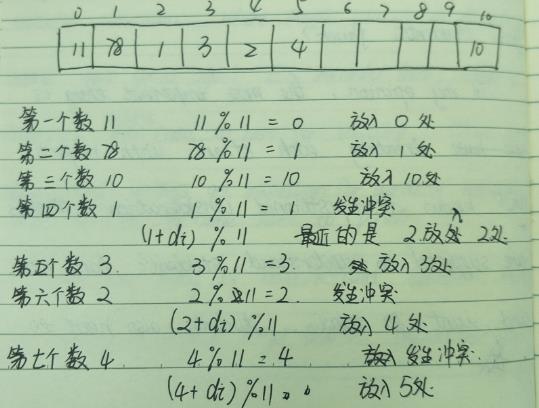 0 1 2 3 4 5 6 7 8 9 10
11 78 1 3 2 4 10
第一个数 11 11 % 11 = 0 放入 0 处
第二个数 78 78 % 11 = 1 放入 1 处
第三个数 10 10 % 11 = 10 放入 10处
第四个数 1 1 % 11 = 1 发生冲突
(1+di) % 11 最近的是 2.放入 2处
第五个数 3. 3 % 11 = 3. 放入 3处
第六个数 2 2 % 11 = 2. 发生冲突
(2+di) % 11 放入 4 处
第七个数 4 4 % 11 = 4 发生冲突.
(4+di) % 11 = 放入 5处